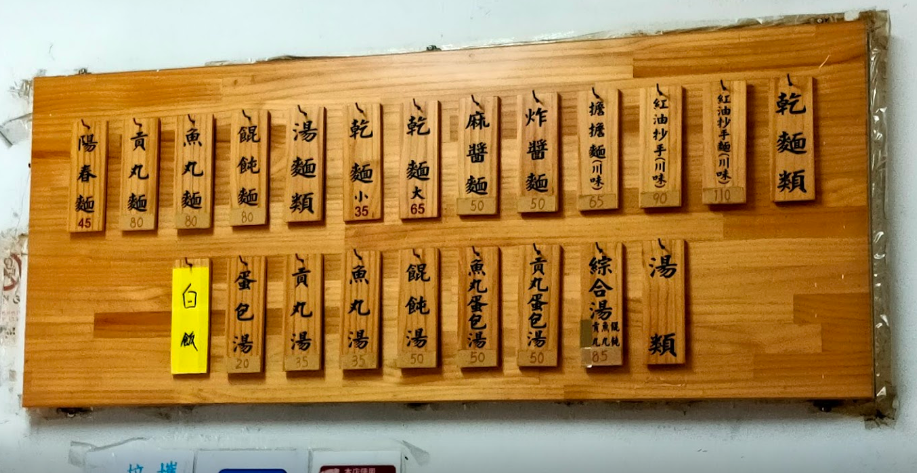 乾麵類
紅油抄手麵(川味) 110
紅油抄手(川味) 90
擔擔麵(川味) 65
炸醬麵 50
麻醬麵 50
乾麵 大 65
乾麵 小 35
湯麵類
餛飩麵 80
魚丸麵 80
貢丸麵 80
陽春麵 45
湯類
綜合湯 餛飩 魚丸 貢丸 85
貢丸蛋包湯 50
魚丸蛋包湯 50
餛飩湯 50
魚丸湯 35
貢丸湯 35
蛋包湯 20
白飯